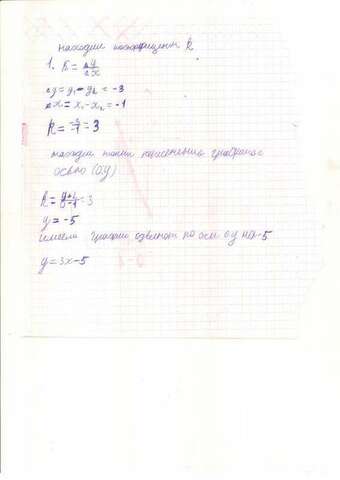 находим коэффициент k
1. k = Δy/Δx
Δy = y₁ - y₂ = -3
Δx = x₁ - x₂ = -1
k = -3/-1 = 3
находим точки пересечения графика с
осью (OY)
= 3
y = -5
график по оси oy на -5
y = 3x - 5